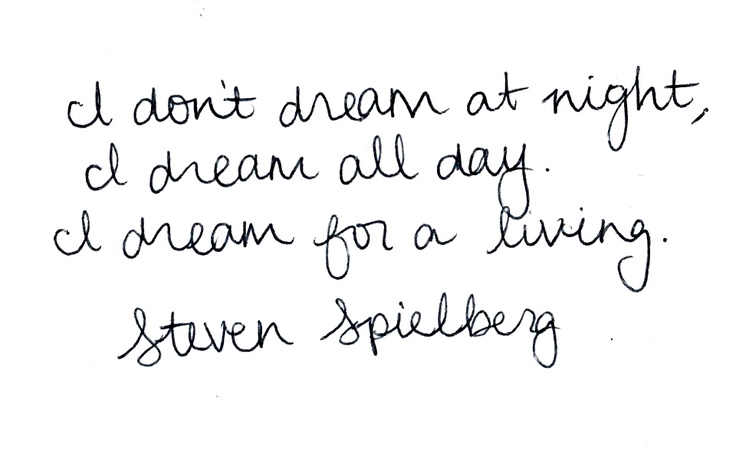 I don't dream at night,
I dream all day.
I dream for a living.
Steven Spielberg